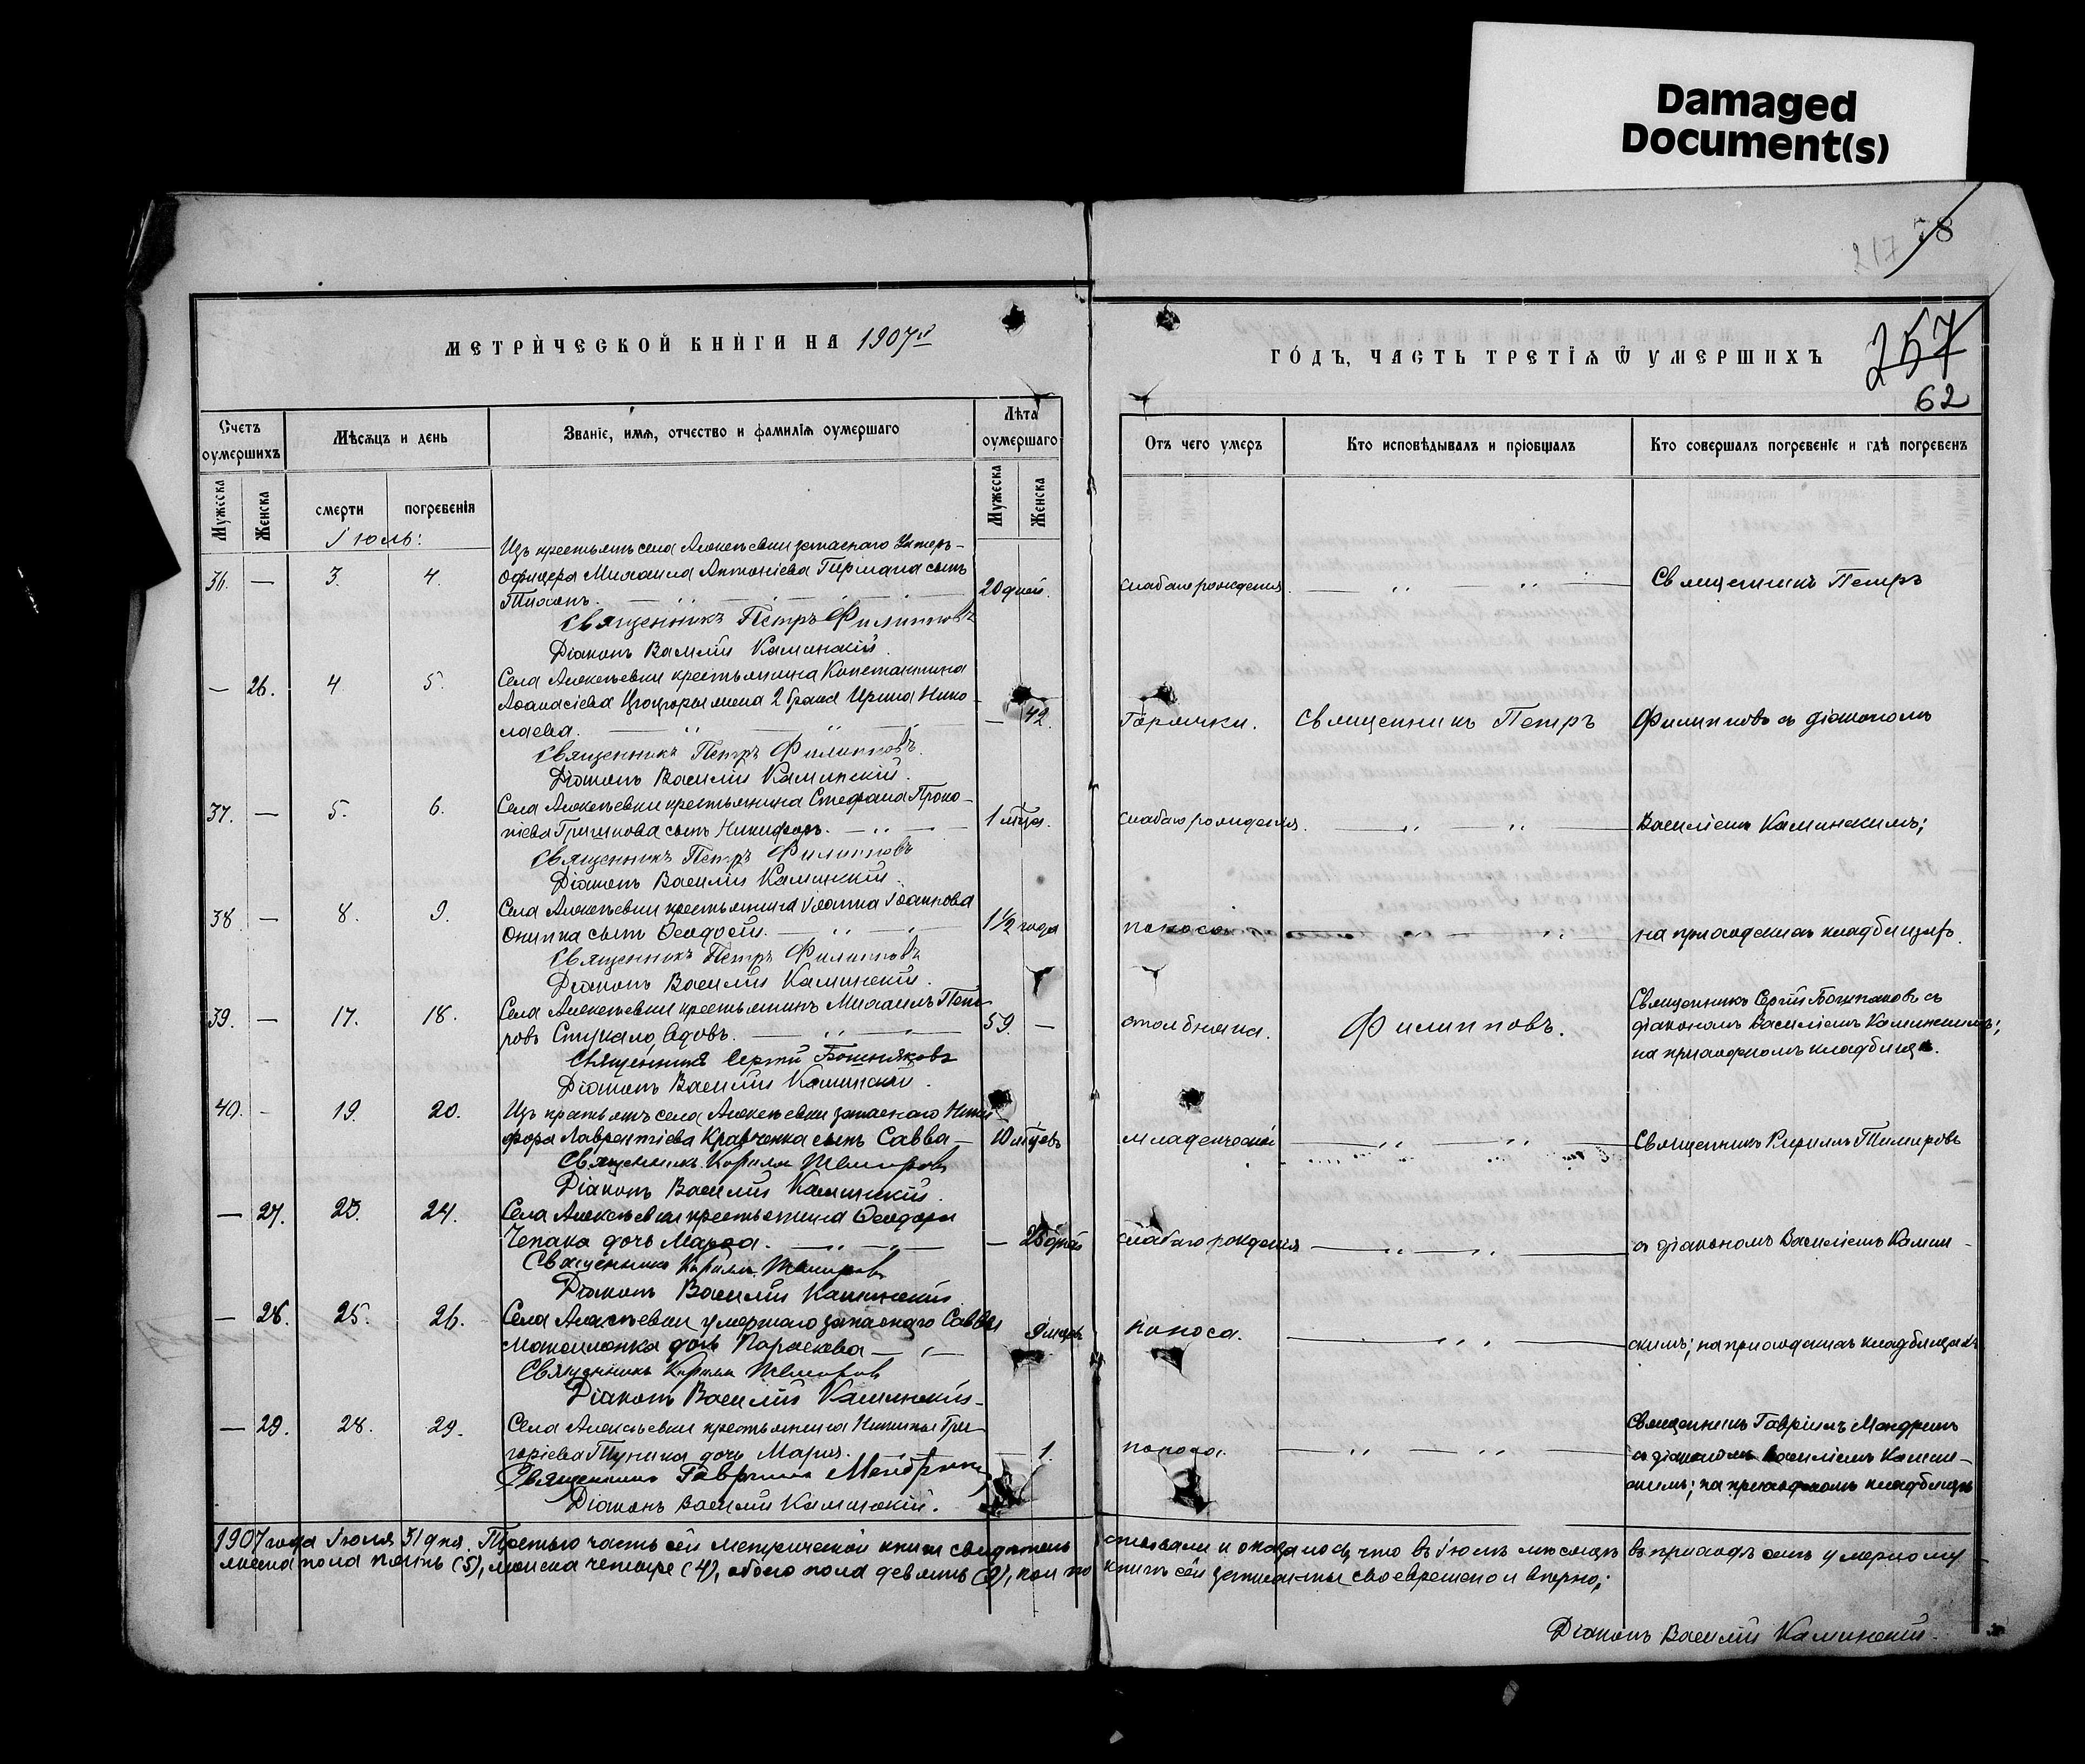 Damaged
Document(s)
78
217
МЕТРИЧЕСКОЙ КНИГИ НА 1907й
ГОДЪ, ЧАСТЬ ТРЕТІЯ Ѿ УМЕРШИХЪ
257
62
Счетъ оумершихъ
Мѣсяцъ и день
Званіе, имя, отчество и фамилія оумершаго
Лѣта оумершаго
Отъ чего умеръ
Кто исповѣдывалъ и пріобщалъ
Кто совершалъ погребеніе и гдѣ погребенъ
Мужеска
Женска
смерти
погребенія
Мужеска
Женска
Іюль:
Изъ крестьянъ села Алексѣевки запаснаго Унтеръ-
36. — 3. 4. офицера Михаила Антоніева Гирмана сынъ 20 дней. слабаго рожденія. — „ „ — Священникъ Петръ
Тихонъ.
Священникъ Петръ Филипповъ
Діаконъ Василій Каминскій.
Села Алексѣевки крестьянина Константина
— 26. 4 5. Аѳанасіева жена 2 брака Ирина Нико-
лаева. — 42. Горячки. Священникъ Петръ Филипповъ съ діакономъ
Священникъ Петръ Филипповъ.
Діаконъ Василій Каминскій.
Села Алексѣевки крестьянина Стефана Проко-
37. — 5. 6. піева сынъ Никифоръ. 1 мѣся. слабаго рожденія. — „ „ — Василіемъ Каминскимъ;
Священникъ Петръ Филипповъ
Діаконъ Василій Каминскій.
Села Алексѣевки крестьянина Іоанна Іоаннова
38. — 8. 9. сынъ Ѳеодосій. 1½ года поноса — „ — на приходскихъ кладбищахъ.
Священникъ Петръ Филипповъ
Діаконъ Василій Каминскій.
Села Алексѣевки крестьянинъ Михаилъ Пет- Священникъ Сергій Бошняковъ съ
39. — 17. 18. ровъ Стукало, вдовъ. 59. — столбняка. Филипповъ. діакономъ Василіемъ Каминскимъ;
на приходскомъ кладбищѣ.
Священникъ Сергій Бошняковъ
Діаконъ Василій Каминскій.
40. - 19. 20. Изъ крестьянъ села Алексѣевки запаснаго Ники-
фора Лаврентіева Кравченка сынъ Савва — 10 мѣсцевъ младенческой — „ „ — Священникъ Кириллъ Тимировъ
Священникъ Кириллъ Тимировъ
Діаконъ Василій Каминскій.
— 27. 23. 24. Села Алексѣевки крестьянина Ѳеодора
Чепака дочь Марѳа. — 25 дней слабаго рожденія — „ „ — съ діакономъ Василіемъ Камин-
Священникъ Кириллъ Тимировъ
Діаконъ Василій Каминскій
— 28. 25. 26. Села Алексѣевки умершаго запаснаго Саввы
дочь Параскева — 9 мѣсцевъ поноса. — „ — скимъ; на приходскихъ кладбищахъ
Священникъ Кириллъ Тимировъ
Діаконъ Василій Каминскій.
— 29. 28. 29. Села Алексѣевки крестьянина Никиты Гри- Священникъ Гавріилъ Мандрикъ
горіева дочь Марія. — 1. поноса. — „ „ — съ діакономъ Василіемъ Камин-
скимъ; на приходскомъ кладбищѣ
Священникъ Гавріилъ
Діаконъ Василій Каминскій.
1907 года Іюля 31 дня. Третью часть сей метрической книги свидѣтель-ствовали и оказалось, что въ Іюлѣ мѣсяцѣ въ приходѣ семъ умершихъ
мужска пола пять (5), женска четыре (4), обоего пола девять (9), кои по книгѣ сей записаны своевременно и вѣрно;
Діаконъ Василій Каминскій.